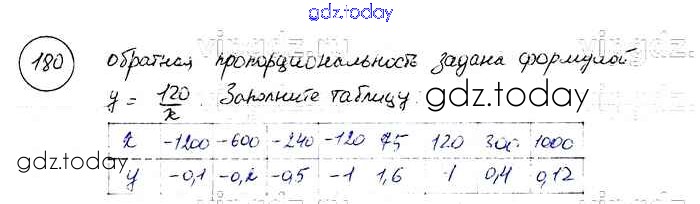 gdz.today
180 обратная пропорциональность задана формулой
y = 120/x. Заполните таблицу.
gdz.today
x -1200 -600 -240 -120 75 120 300 1000
gdz.today
y -0,1 -0,2 -0,5 -1 1,6 1 0,4 0,12